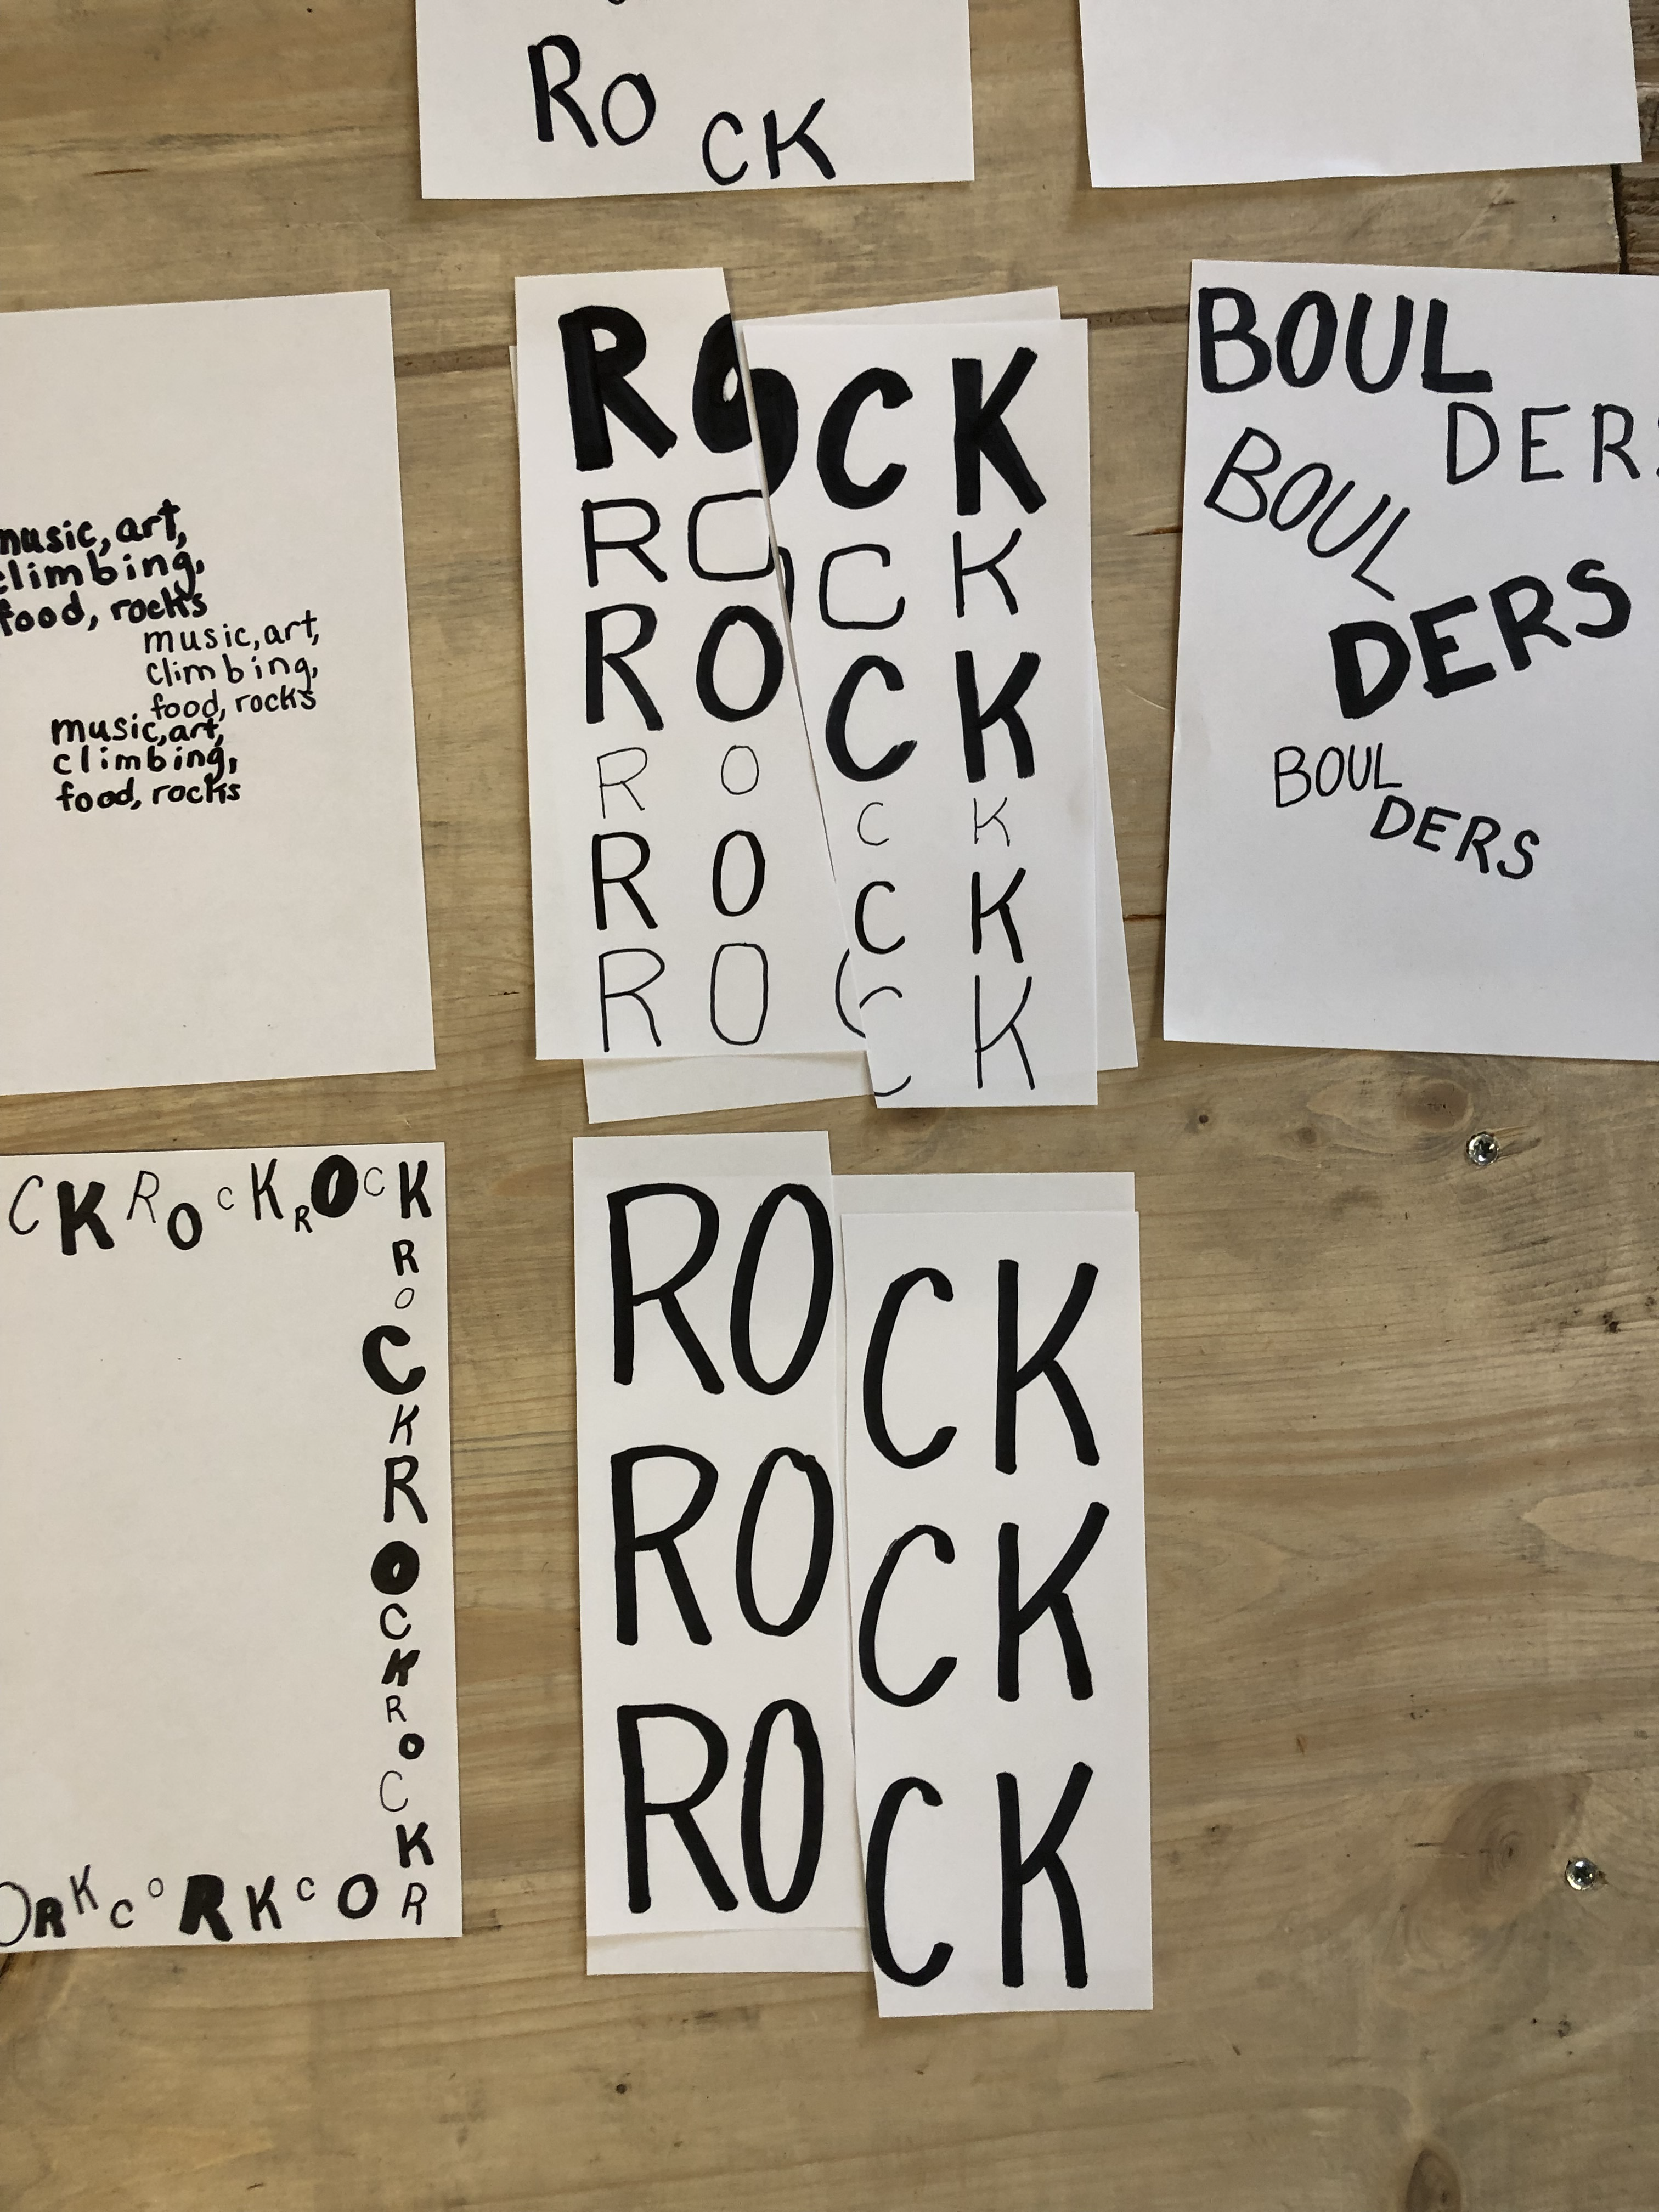 ROCK
music, art,
climbing,
food, rocks
music, art,
climbing,
food, rocks
music, art,
climbing,
food, rocks
ROCK
ROCK
ROCK
ROCK
ROCK
ROCK
BOUL
DERS
BOUL
DERS
BOUL
DERS
CKROCKROCK
R
O
C
K
R
O
C
K
R
O
C
K
ORKCORKCOR
ROCK
ROCK
ROCK